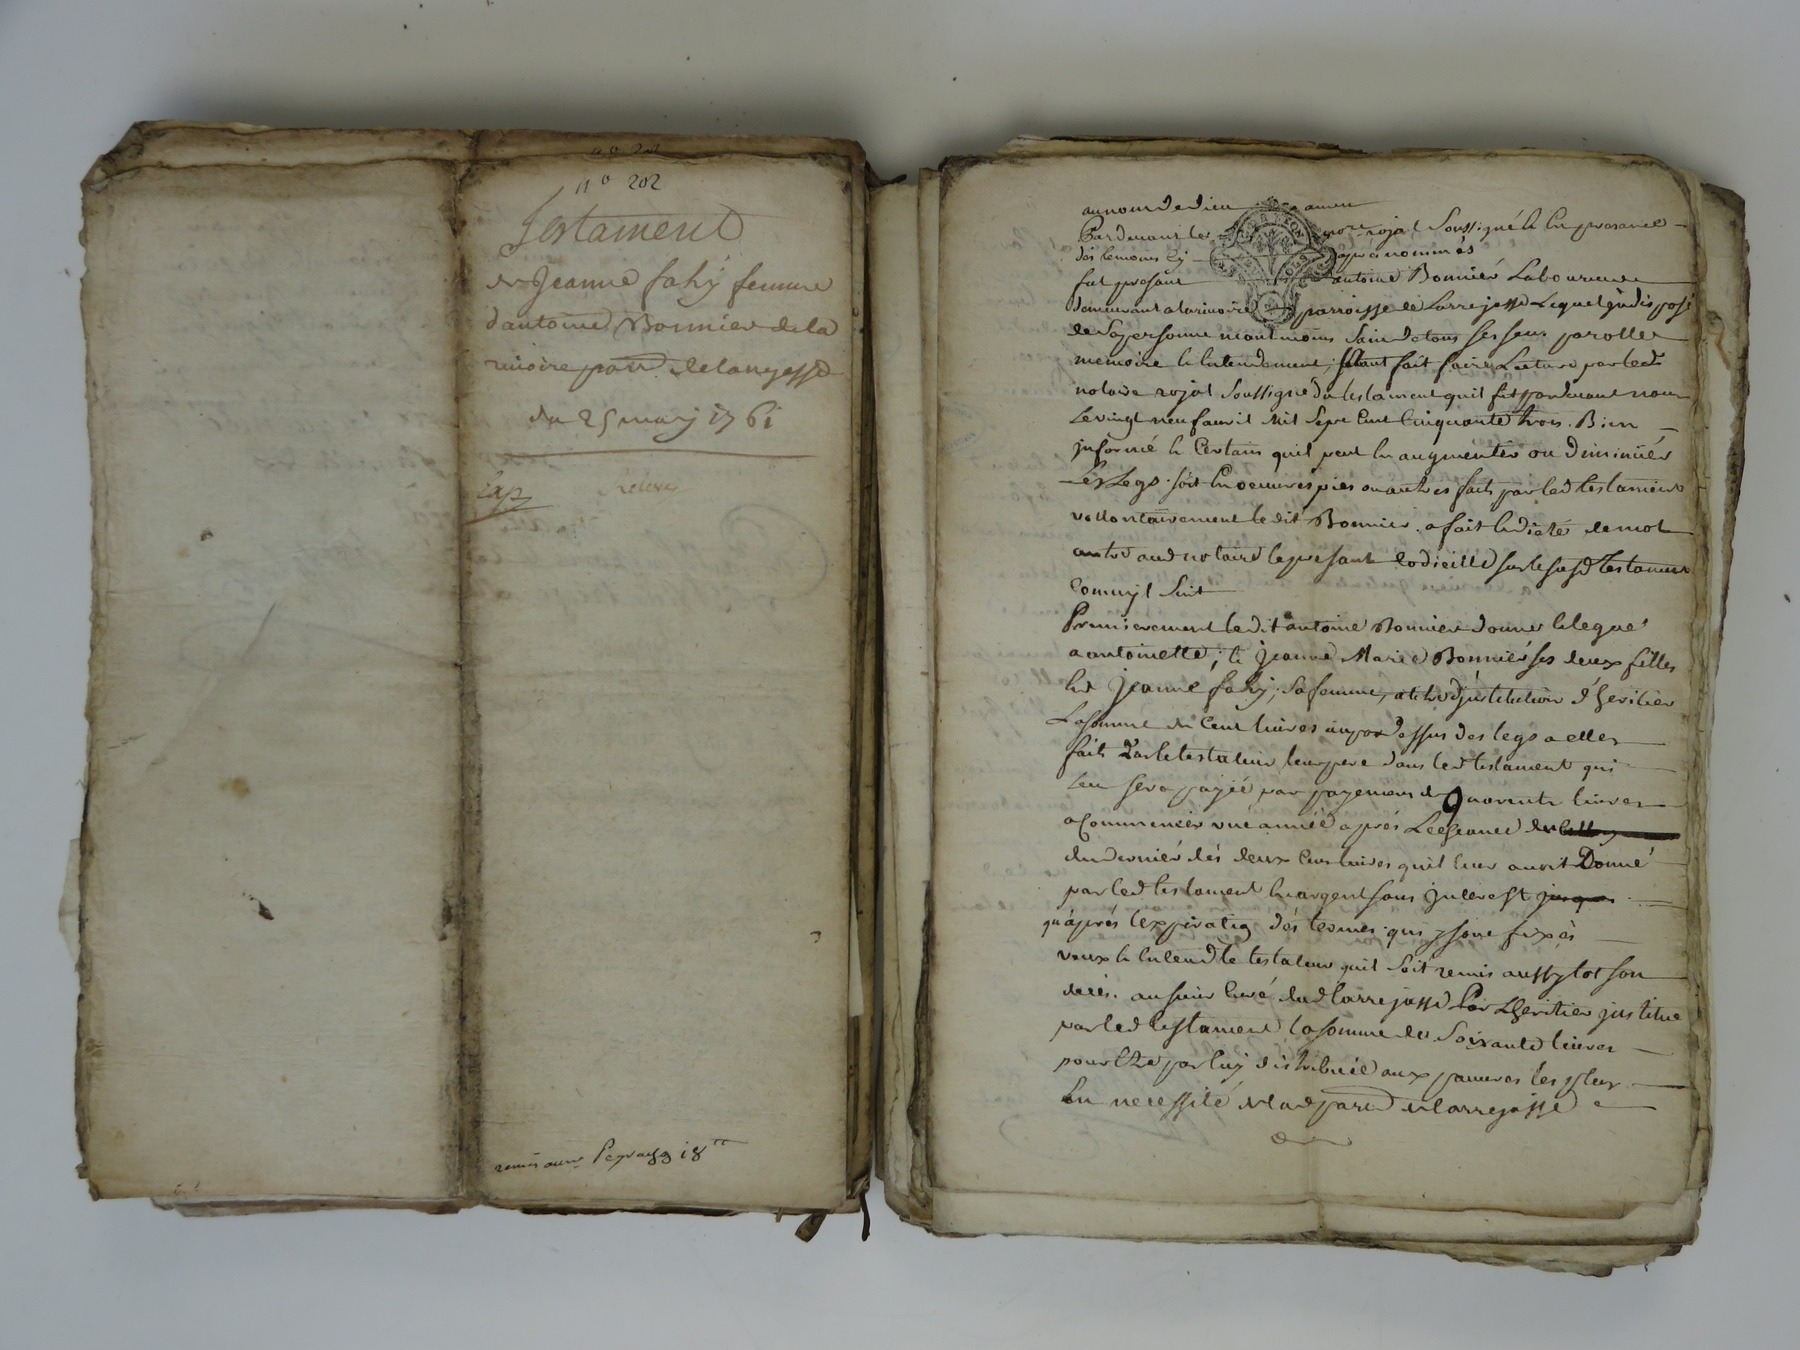 n° 202
n° 202
Testament
de Jeanne fahÿ femme
dantoine Bonnier de la
rivoire parr de larajasse
du 25 may 1761
Exp
remis aux 18
au nom de dieu amen
Pardevant le nore royal Soussigné & en presance
dés temoins cy apres nommés
fut présant antoine Bonniér Laboureur
demeurant a la rivoire parroisse de Larrajasse Lequel jndisposé
de sa personne neantmoins Sain de tous ses sens parolle
memoire & Entendement, sétant fait faire Lecture par led
notaire royal Soussigné du testament quil fit pardevant nous
Le vingt neuf avril Mil Sept Cent Cinquante trois. Bien
jnformé & Certain quil peut En augmentér ou diminuér
Les Legs soit En oeuvres pies ou autres faits par led testament
vollontairement ledit Bonnier a fait & dicté de mot
autre aud notaire le présant Codicille sur le susd testament
Comm jl Suit
Premierement ledit antoine Bonnier donne & legue
a antoinette, & Jeanne Marie Bonniér ses deux filles
& Jeanne fahÿ, Sa femme, a titre djnstitution d'heritier
La somme de Cent livres au par dessus des legs a elles
faits Par le testateur leur pere dans led testament qui
Leur sera payéé par payement de Quarante livres
a Commencér une année aprés Leschance de
du derniér dés deux Cens livres quil leur auroit Donné
par led testament En argent sans jnterest jusques
qu'aprés lexpiration dés termes qui y sont fixés
veux & Entend le testateur quil Soit remis aussytot son
décés au sieur Curé dud Larrajasse Par Lheritier jnstitué
par led testament la somme de Soixante livres
pour Etre par luy distribuéé aux pauvres les plus
En necessité de lad parr de larrajasse